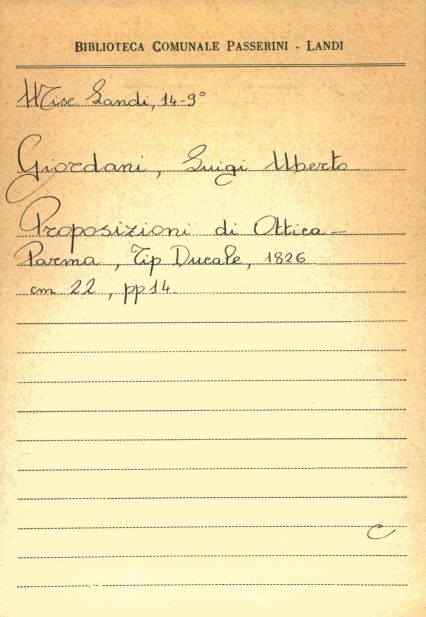 BIBLIOTECA COMUNALE PASSERINI - LANDI
Misc Landi, 14-9°
Giordani, Luigi Uberto
Proposizioni di Ottica -
Parma, Tip Ducale, 1826
cm 22, pp 14.
C